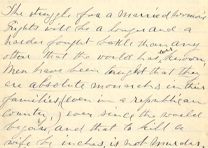 The struggle for a married woman's
rights will be a longer and a
harder fought battle than any
other that the world has ever known.
Men have been taught that they
are absolute monarchs in their
families, (even in a republican
country,) ever since the world
began, and that to kill a
wife by inches, is not murder,